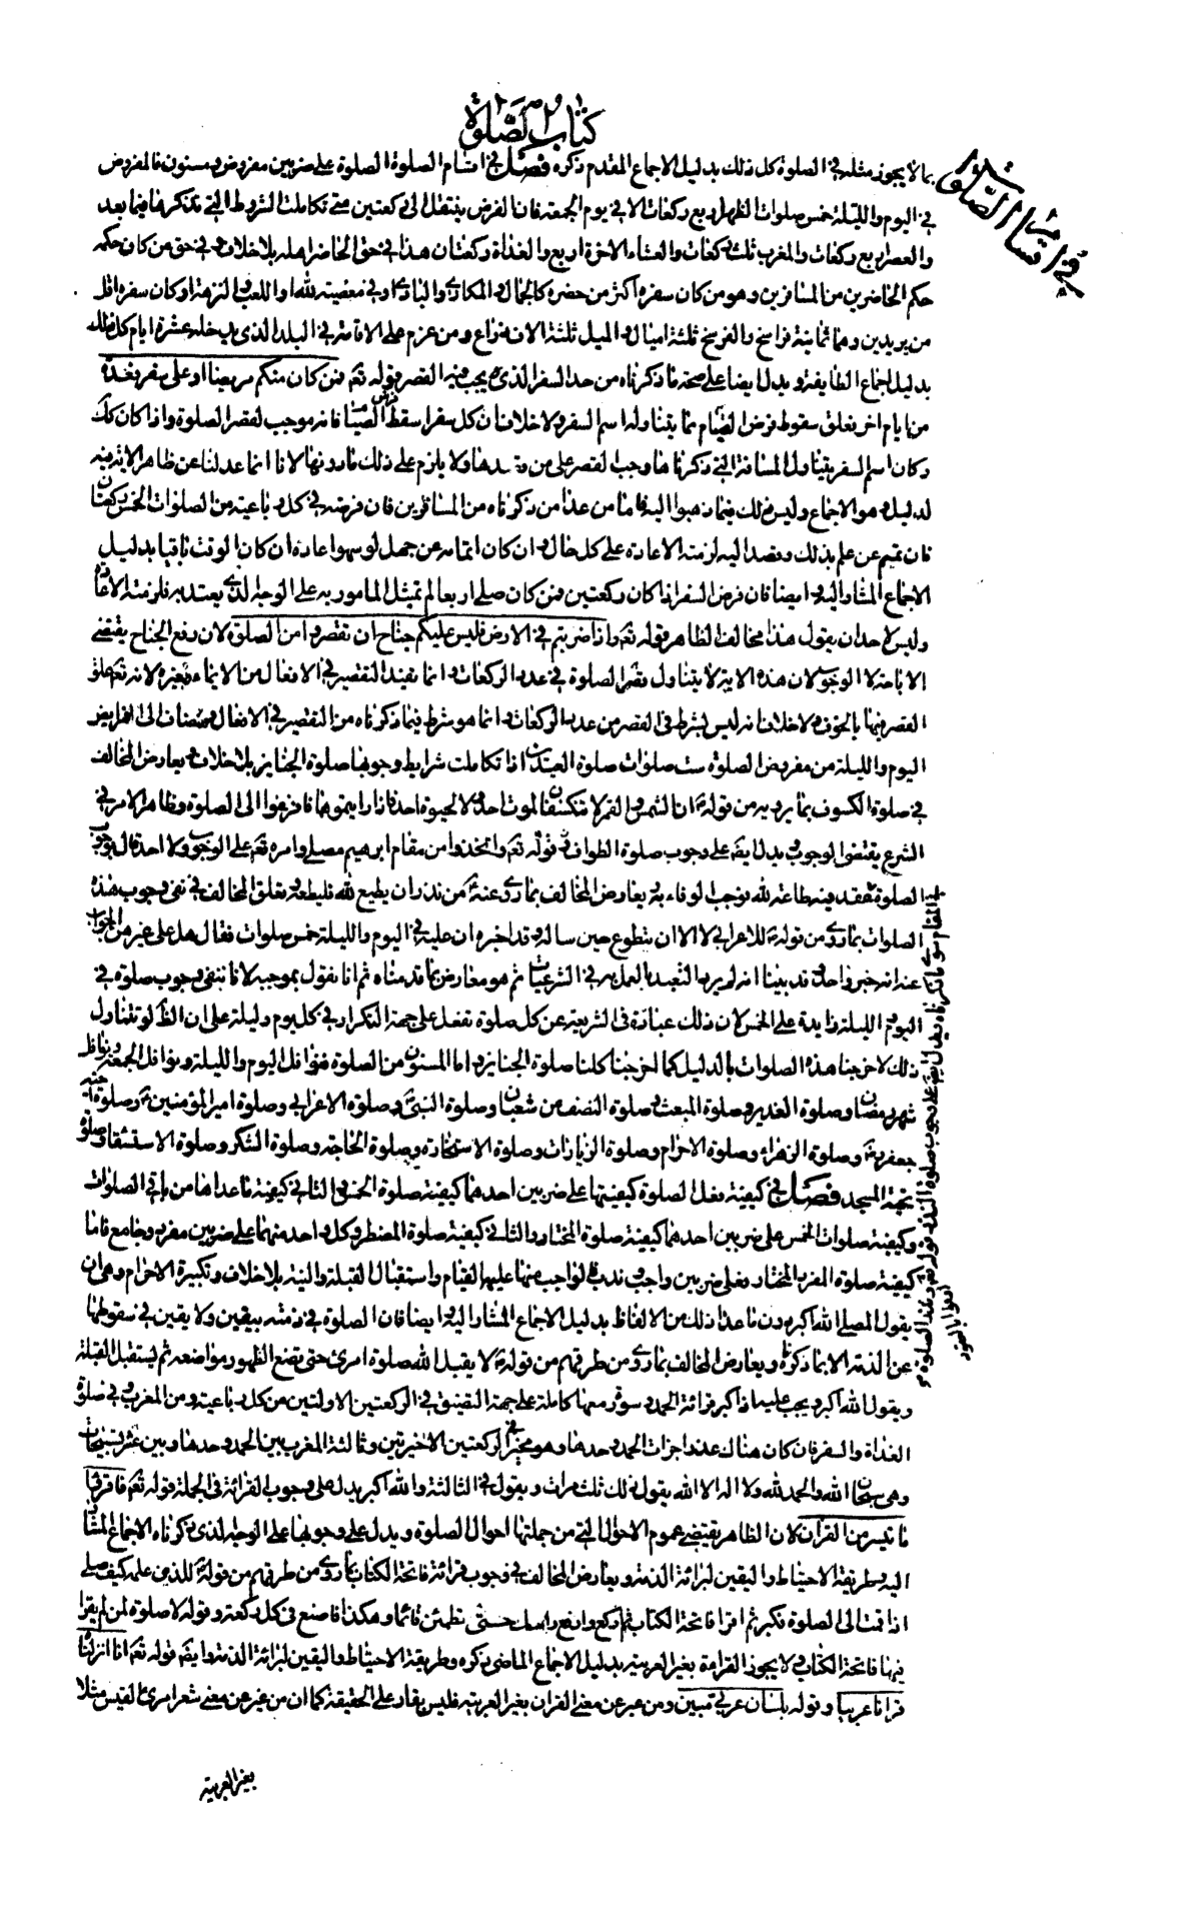 كتاب الصلوة
في اقسام الصلوة
بما لا يجوز مثله في الصلوة كل ذلك بدليل الاجماع المقدم ذكره فصل في اقسام الصلوة الصلوة على ضربين مفروض ومسنون فالمفروض
في اليوم والليلة خمس صلوات الظهر اربع ركعات الا في يوم الجمعة فان الفرض ينتقل الى ركعتين متى تكاملت الشروط التي نذكرها فيما بعد
والعصر اربع ركعات والمغرب ثلث ركعات والعشاء الاخرة اربع والغداة ركعتان هذا في حق الحاضر اهله بلا خلاف وفي حق من كان حكمه
حكم الحاضرين من المسافرين وهو من كان سفره اكثر من حضره كالجمال والمكاري والبادي او في معصية لله او اللعب والنزهة او كان سفره اقل
من بريدين وهما ثمانية فراسخ والفرسخ ثلثة اميال والميل ثلثة الاف ذراع ومن عزم على الاقامة في البلد الذي يدخله عشرة ايام كل ذلك
بدليل اجماع الطايفة ويدل ايضا على صحة ما ذكرناه من حد السفر الذي يجب فيه القصر قوله تعه فمن كان منكم مريضا او على سفر فعدة
من ايام اخر فعلق سقوط فرض الصيام بما يتناوله اسم السفر ولا خلاف ان كل سفر اسقط فرض الصيام فانه موجب لقصر الصلوة واذا كان كك
وكان اسم السفر يتناول المسافة التي ذكرناها وجب القصر على من قصدها ولا يلزم على ذلك ما دونها لانا انما عدلنا عن ظاهر الاية فيه
لدليل هو الاجماع وليس ذلك فيما ذهبوا اليه فاما من عدا من ذكرناه من المسافرين فان فرضه في كل رباعية من الصلوات الخمس ركعتان
فان تمم عن علم بذلك وقصد اليه لزمته الاعادة على كل حال وان كان اتمامه عن جهل او سهو اعاد ان كان الوقت باقيا بدليل
الاجماع المشار اليه وايضا فان فرض السفر اذا كان ركعتين فمن كان صلى اربعا لم يمتثل المامور به على الوجه الذي يعتد به فلزمته الاعادة
وليس لاحد ان يقول هذا مخالف الظاهر قوله تعه واذا ضربتم في الارض فليس عليكم جناح ان تقصروا من الصلوة لان رفع الجناح يقتضي
الاباحة لا الوجوب لان هذه الاية لا يتناول قصر الصلوة في عدد الركعات وانما تفيد التقصير في الافعال من الايماء وغيره لانه تعه علق
القصر فيها بالخوف ولا خلاف انه ليس بشرط في القصر من عدد الركعات وانما هو شرط فيما ذكرناه من التقصير في الافعال ويضاف الى فرايض
اليوم والليلة من مفروض الصلوة ست صلوات صلوة العيدين اذا تكاملت شرايط وجوبها صلوة الجنايز بلا خلاف ويعارض المخالف
في صلوة الكسوف بما يرويه من قوله ان الشمس والقمر لا ينكسفان لموت احد ولا لحيوة احد فاذا رايتموها فافزعوا الى الصلوة وظاهر الامر في
الشرع يقتضي الوجوب ويدل ايضا على وجوب صلوة الطواف قوله تعه واتخذوا من مقام ابرهيم مصلى وامره تعه على الوجوب ولا احد قال بوجوب
الصلوة فعقد فيه طاعة لله يوجب الوفاء به ويعارض المخالف بما روي عنه من نذر ان يطيع الله فليطعه وتعلق المخالف في نفي وجوب هذه
الصلوات بما روي من قوله للاعرابي لا الا ان تتطوع حين ساله وقد اخبره ان عليه في اليوم والليلة خمس صلوات فقال هل علي غيرهن الجواب
عنه انه خبر واحد وقد بينا انه لم يرد التعبد بالعمل به في الشرعيات ثم هو معارض بما قدمناه ثم انا نقول بموجبه لانا ننفي وجوب صلوة في
اليوم والليلة زايدة على الخمس لان ذلك عبارة في الشريعة عن كل صلوة تفعل على جهة التكرار في كل يوم وليلة على ان الظاهر لو تناول
ذلك لاخرجنا هذه الصلوات بالدليل كما اخرجنا كلنا صلوة الجنايز واما المسنون من الصلوة فنوافل اليوم والليلة ونوافل الجمعة ونوافل
شهر رمضان وصلوة الغدير وصلوة المبعث وصلوة النصف من شعبان وصلوة النبي وصلوة الاعرابي وصلوة امير المؤمنين وصلوة اخيه
جعفر وصلوة الزهراء وصلوة الاحرام وصلوة الزيارات وصلوة الاستخارة وصلوة الحاجة وصلوة الشكر وصلوة الاستسقاء وصلوة
تحية المسجد فصل في كيفية فعل الصلوة كيفيتها على ضربين احدهما كيفية صلوة الخمس والثاني كيفية ما عداها من باقي الصلوات
وكيفية صلوات الخمس على ضربين احدهما كيفية صلوة المختار والثاني كيفية صلوة المضطر وكل واحد منهما على ضربين مفرد وجامع فاما
كيفية صلوة المفرد المختار فعلى ضربين واجب وندب فالواجب منها عليه القيام واستقبال القبلة والنية بلا خلاف وتكبيرة الاحرام وهي ان
يقول المصلي الله اكبر دون ما عدا ذلك من الالفاظ بدليل الاجماع المشار اليه وايضا فان الصلوة في ذمته بيقين ولا يقين في سقوطها
عن الذمة الا بما ذكرناه ويعارض المخالف بما روي من طرقهم من قوله لا يقبل الله صلوة امرئ حتى يضع الطهور مواضعه ثم يستقبل القبلة
ويقول الله اكبر ويجب عليه اذا كبر قرائة الحمد وسورة معها كاملة على جهة التضيق في الركعتين الاولتين من كل رباعية ومن المغرب وفي صلوة
الغداة والسفر فان كان هناك عذر اجزات الحمد وحدها وهو مخير في الركعتين الاخيرتين وثالثة المغرب بين الحمد وحدها وبين عشر تسبيحات
وهي سبحان الله والحمد لله ولا اله الا الله يقول ذلك ثلث مرات ويقول في الثالثة والله اكبر يدل على وجوب القرائة في الجملة قوله تعه فاقرئوا
ما تيسر من القران لان الظاهر يقتضي عموم الاحوال التي من جملتها احوال الصلوة ويدل على وجوبها على الوجه الذي ذكرناه الاجماع المشار
اليه وطريقة الاحتياط واليقين لبرائة الذمة ويعارض المخالف في وجوب قرائة فاتحة الكتاب بما روي من طرقهم من قوله للذي علمه كيف يصلي
اذا قمت الى الصلوة فكبر ثم اقرا فاتحة الكتاب ثم اركع وارفع راسك حتى تطمئن قائما وهكذا فاصنع في كل ركعة وقوله لا صلوة لمن لم يقرا
فيها فاتحة الكتاب ولا يجوز القراءة بغير العربية بدليل الاجماع الماضي ذكره وطريقة الاحتياط واليقين لبرائة الذمة وايضا قوله تعه انا انزلناه
قرانا عربيا وقوله بلسان عربي مبين ومن عبر عن معنى القران بغير العربية فليس بقار على الحقيقة كما ان من عبر عن معنى شعر امرئ القيس مثلا
بغير العربية
في المقام سوى ما ذكرناه ويدل ايضا على وجوب صلوة النذر قوله تعه
اوفوا بالعقود